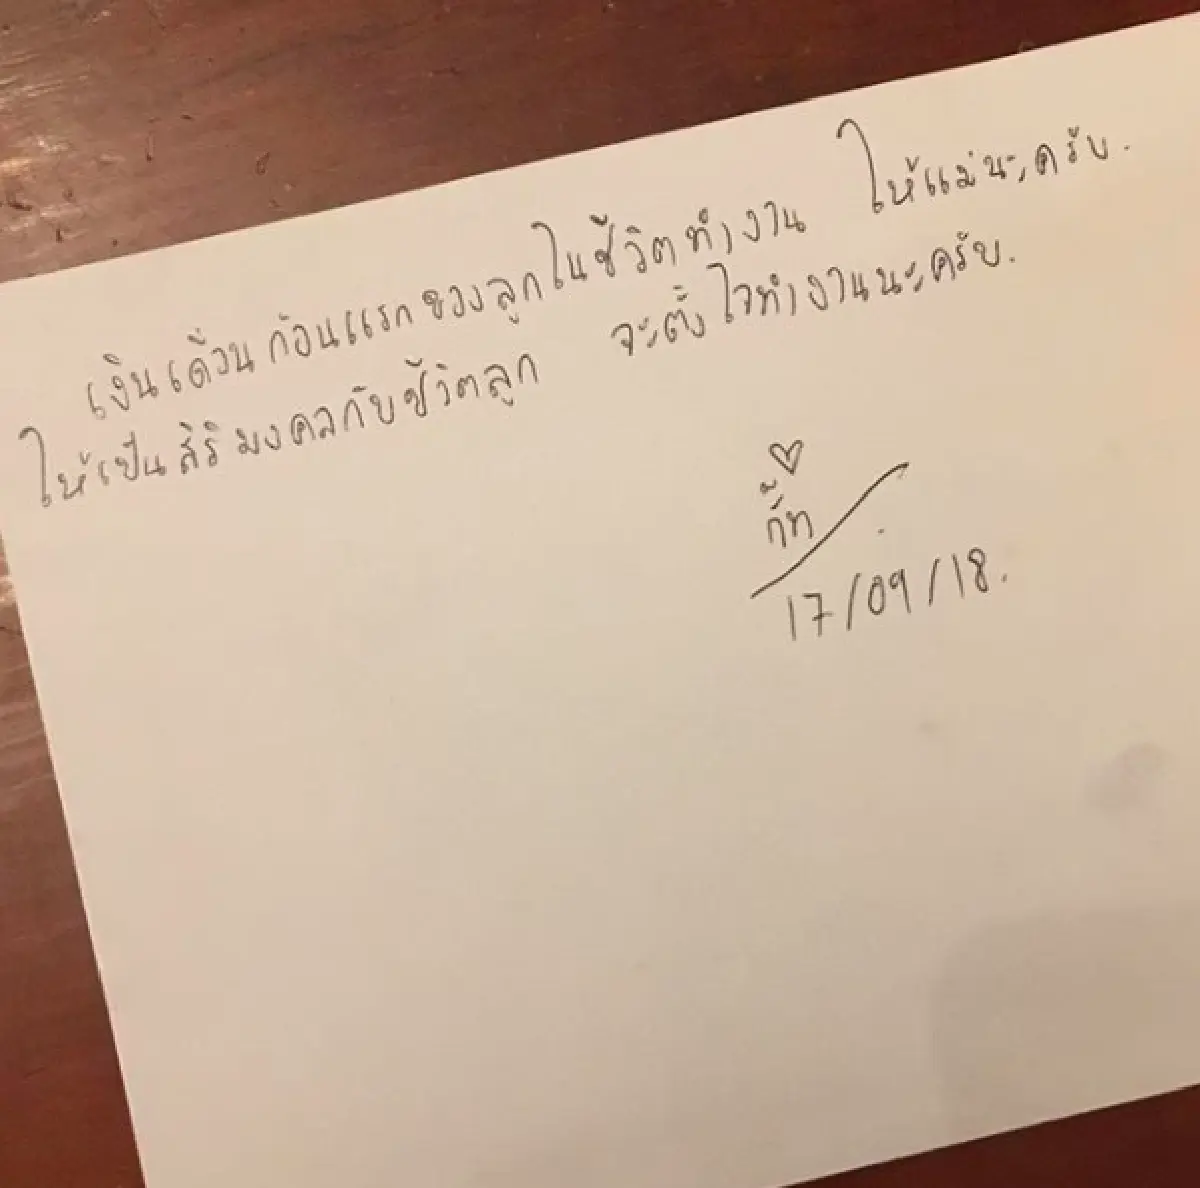 เงินเดือนก้อนแรกของลูกในชีวิตทำงาน ให้แม่นะครับ.
ให้เป็นสิริมงคลกับชีวิตลูก จะตั้งใจทำงานนะครับ.
กั๊ก
17/09/18.